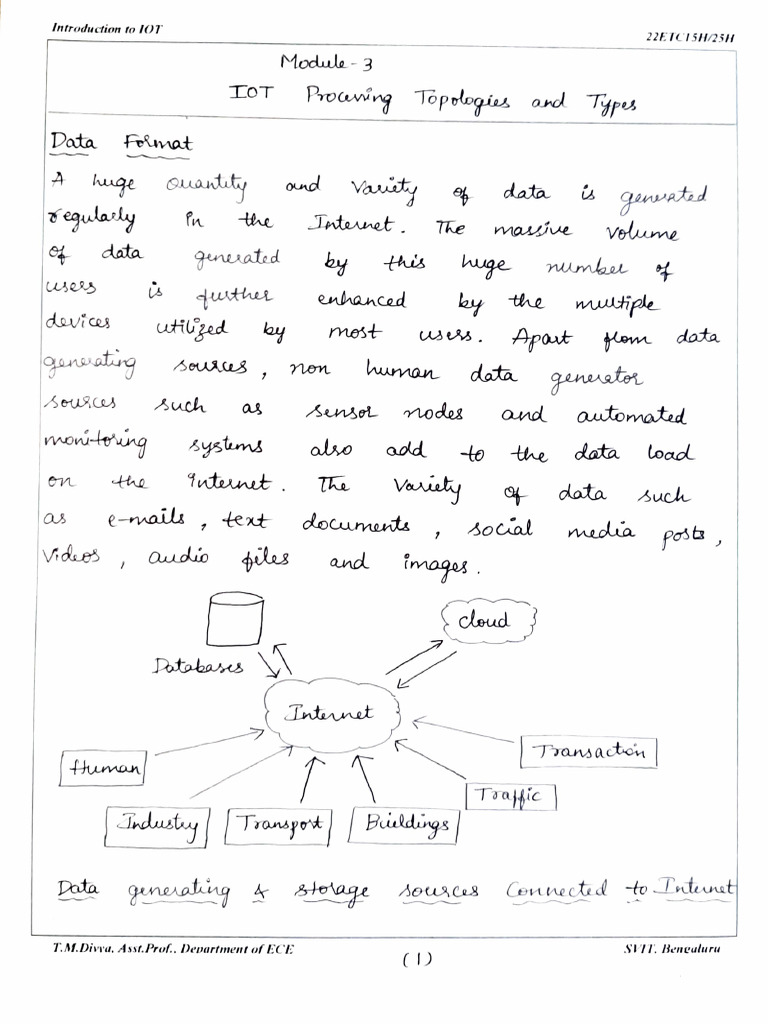 Introduction to IOT
22ETC15H/25H
Module - 3
IOT Processing Topologies and Types
Data Format
A huge quantity and variety of data is generated
regularly in the Internet. The massive volume
of data generated by this huge number of
users is further enhanced by the multiple
devices utilized by most users. Apart from data
generating sources, non human data generator
sources such as sensor nodes and automated
monitoring systems also add to the data load
on the Internet. The variety of data such
as e-mails, text documents, social media posts,
videos, audio files and images.
Cloud
Databases
Internet
Transaction
Human
Traffic
Industry Transport Buildings
Data generating & storage sources connected to Internet
T.M.Divya, Asst.Prof., Department of ECE
SVIT, Bengaluru
(1)